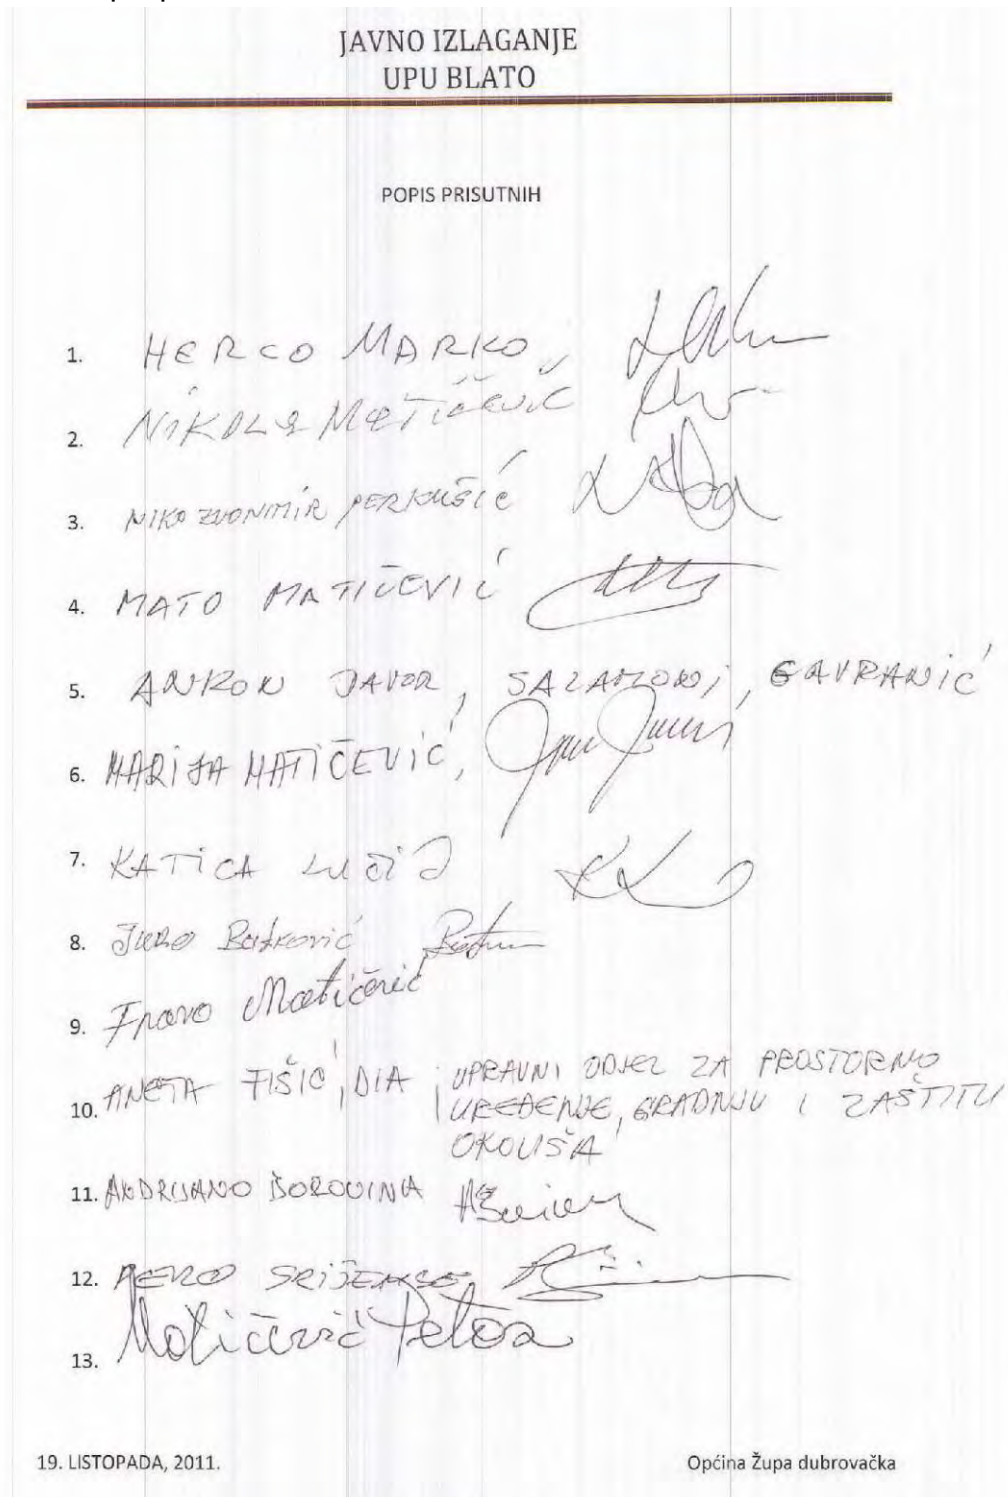 JAVNO IZLAGANJE
UPU BLATO
POPIS PRISUTNIH
1. HERCO MARKO,
2. NIKOLA MATIČEVIĆ
3. NIKO ZVONIMIR PERKUŠIĆ
4. MATO MATIČEVIĆ
5. ANKON JAVOR, , GAVRANIĆ
6. MARIJA MATIČEVIĆ,
7. KATICA LUČIĆ
8. JURO Batković
9. Frano Matičević
10. ANETA FIŠIĆ, DIA, UPRAVNI ODJEL ZA PROSTORNO
UREĐENJE, GRADNJU I ZAŠTITU
OKOLIŠA
11. ANDRIJANO BOROVINA
12. PERO SRIJEMSI
13. Matičević Petra
19. LISTOPADA, 2011. Općina Župa dubrovačka